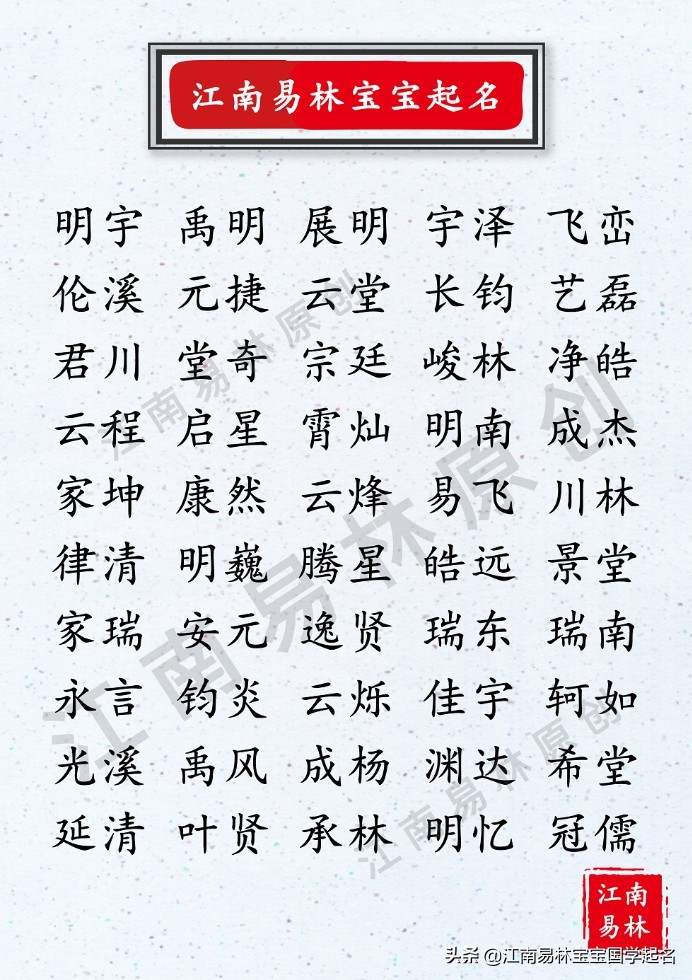 江南易林宝宝起名
明宇 禹明 展明 宇泽 飞峦
伦溪 元捷 云堂 长钧 艺磊
君川 堂奇 宗廷 峻林 净皓
云程 启星 霄灿 明南 成杰
家坤 康然 云烽 易飞 川林
律清 明巍 腾星 皓远 景堂
家瑞 安元 逸贤 瑞东 瑞南
永言 钧炎 云烁 佳宇 轲如
光溪 禹风 成杨 渊达 希堂
延清 叶贤 承林 明忆 冠儒
江南易林原创
江南易林原创
江南易林原创
江南
易林
头条 @江南易林宝宝国学起名